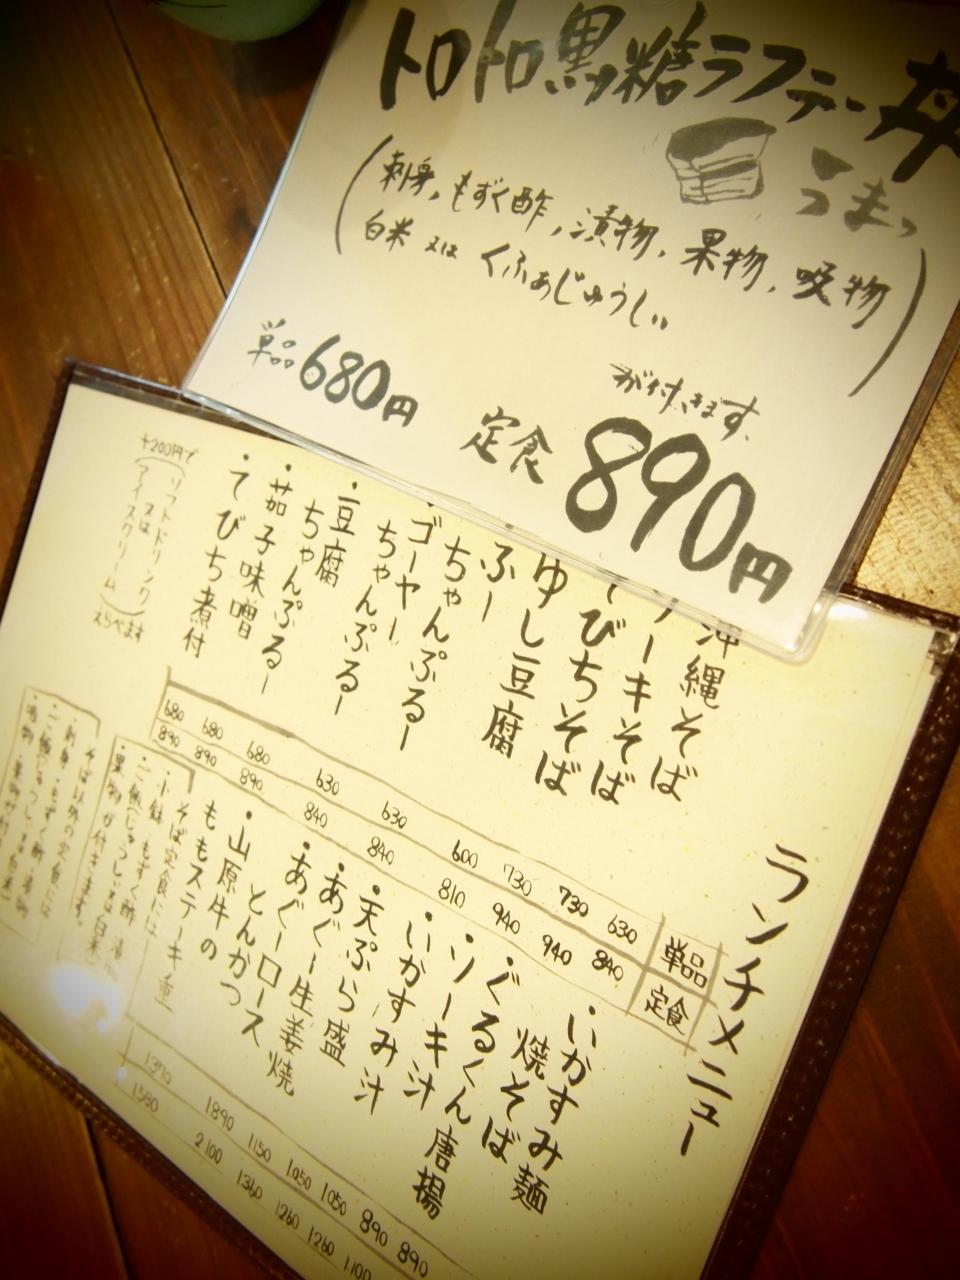 トロトロ黒糖ラフテー丼
うまっ
(刺身、もずく酢、漬物、果物、吸物
白米 又は くふぁじゅうしい)
が付きます。
単品680円
定食 890円
ランチメニュー
単品
定食
沖縄そば
630
840
ソーキそば
730
940
てびちそば
730
940
ゆし豆腐
600
810
ふー
ちゃんぷるー
630
840
・ゴーヤー
ちゃんぷるー
630
840
・豆腐
ちゃんぷるー
680
890
・茄子味噌
680
890
・てびち煮付
680
890
+200円で
(ソフトドリンク
又は
アイスクリーム)
えらべます
・いかすみ麺
焼そば
890
・ぐるくん唐揚
890
1100
・ソーキ汁
1050
1260
・いかすみ汁
1050
1260
・天ぷら盛
1150
1360
・あぐー生姜焼
1890
2100
・あぐーロース
とんかつ
1370
1580
・山原牛の
ももステーキ重
そば定食には
・小鉢・もずく酢
・ご飯(じゅうしい又は白米)
・果物が付きます。
そば以外の定食には
・刺身・もずく酢